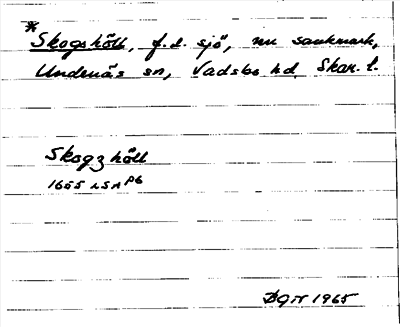 * Skogshöll, f.d. sjö, nu sankmark,
Undenäs sn, Vadsbo hd. Skar. l.
Skogzhöll
1655 LSA P6
1965